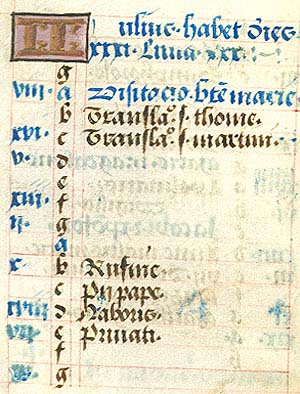 KL ulius · habet · dies ·
xxxi · Luna · xxx ·
g
viii · a Visitacio · bte marie
b Translao · s · thome ·
xvi · c Translao · s · martini ·
v · d
e
xiii · f
ii · g
a
x · b Rufine ·
c Pii pape ·
xviii · d Naboris ·
vii · e Privati ·
f
g